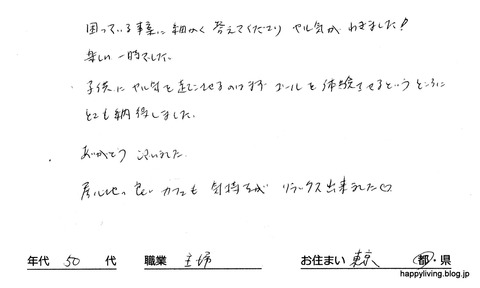 困っている事案に細かく答えてくださり ヤル気がわきました!
楽しい一時でした。
・子供にヤル気を起こさせるのはまずゴールを体験させるというところに
とても納得しました。
ありがとうございました。
居心地の良いカフェも気持ちがリラックス出来ました♡
年代 50 代 職業 主婦 お住まい 東京 都・県
happyliving.blog.jp